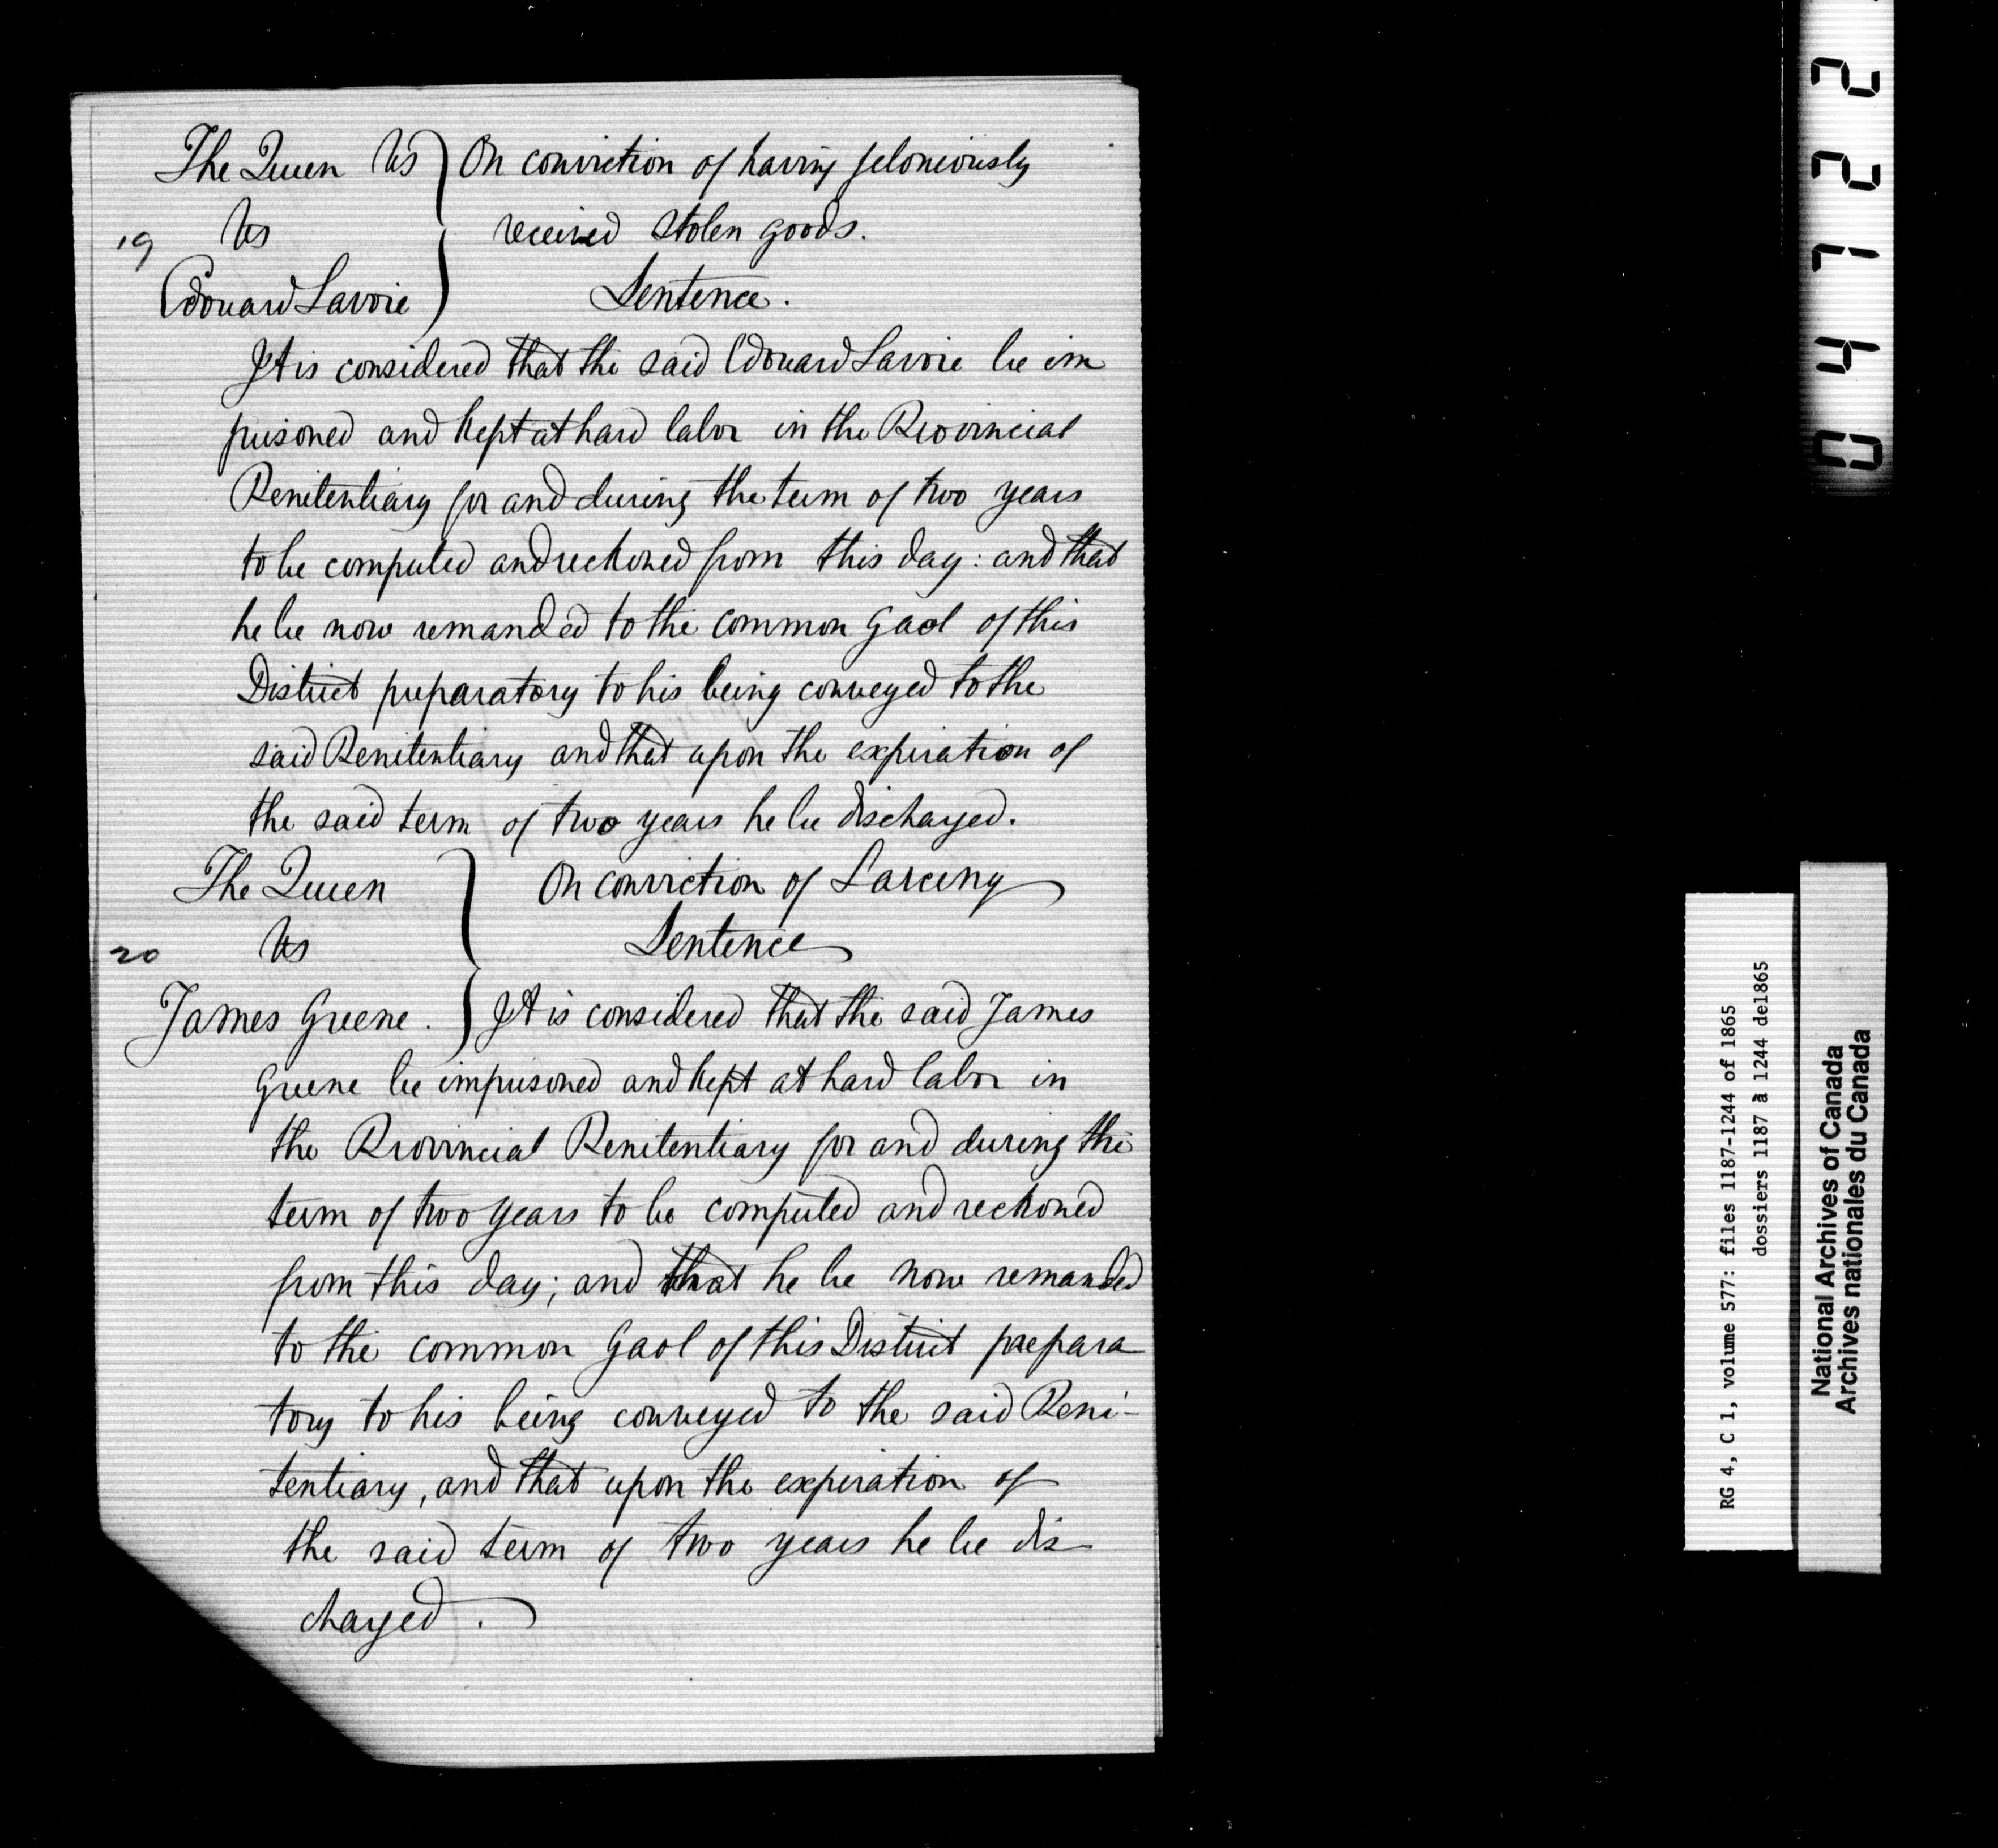 The Queen Vs } On conviction of having feloneiously
19 Vs } received stolen goods.
Edouard Lavoie } Sentence.
It is considered that the said Edouard Lavoie be im
prisoned and kept at hard labor in the Provincial
Penitentiary for and during the term of two years
to be computed and reckoned from this day: and that
he be now remanded to the common Gaol of this
District preparatory to his being conveyed to the
said Penitentiary and that upon the expiration of
the said term of two years he be discharged.
The Queen } On conviction of Larceny
20 Vs } Sentence
James Greene. } It is considered that the said James
Greene be imprisoned and kept at hard labor in
the Provincial Penitentiary for and during the
term of two years to be computed and reckoned
from this day; and that he be now remanded
to the common Gaol of this District prepara
tory to his being conveyed to the said Peni-
tentiary, and that upon the expiration of
the said term of two years he be dis
charged.
RG 4, C 1, volume 577: files 1187-1244 of 1865
dossiers 1187 à 1244 de1865
National Archives of Canada
Archives nationales du Canada
04122